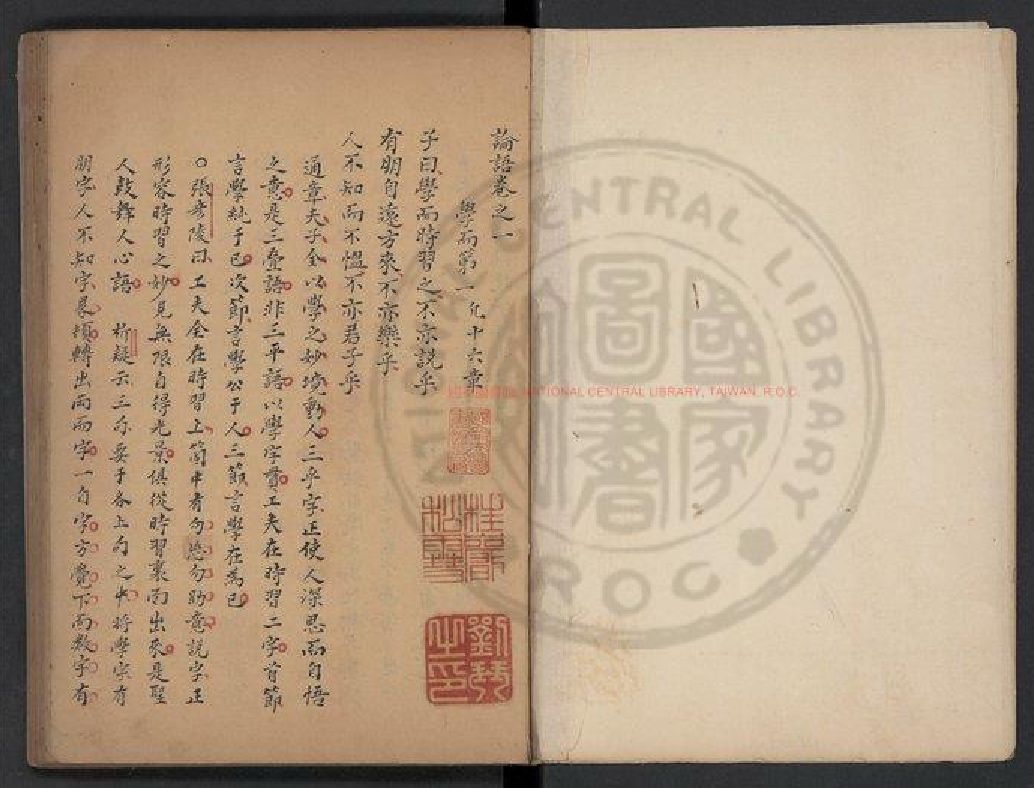 論語卷之一
學而第一 凢十六章
子曰學而時習之不亦説乎
有朋自遠方來不亦樂乎
人不知而不慍不亦君子乎
通章夫子全以學之妙境動人三乎字正使人深思而自悟
之意是三疊語非三平語以學字貫工夫在時習二字首節
言學純于己次節言學公于人三節言學在為己
○張彥陵曰工夫全在時習上箇中有勿忘勿助意説字正
形容時習之妙見無限自得光景俱從時習裏面出來是聖
人鼓舞人心語 析疑云三亦要于各上句之中將學字有
朋字人不知字轉出而字一自字方覺下而數字有
國家圖書館 NATIONAL CENTRAL LIBRARY, TAIWAN, R.O.C
劉
之印
NATIONAL CENTRAL LIBRARY
ROC
國家圖書